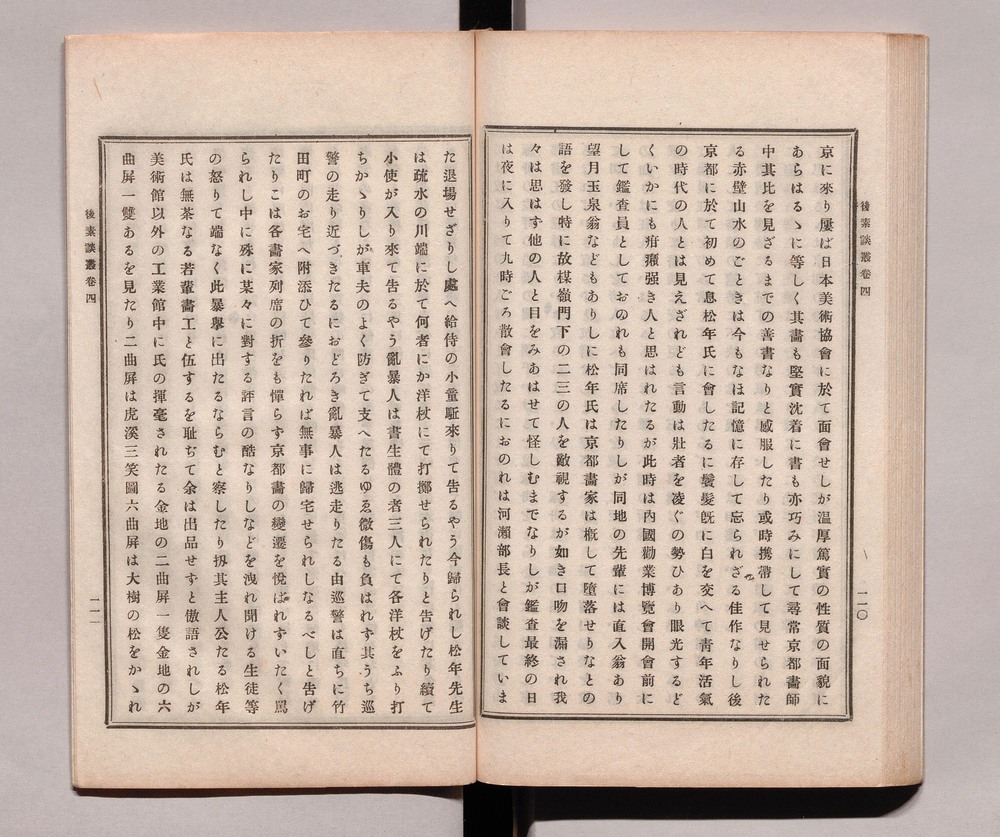 後素談叢卷四
一一〇
京に來り屢ば日本美術協會に於て面會せしが温厚篤實の性質の面貌に
あらはるゝに等しく其畵も堅實沈着に書も亦巧みにして尋常京都畵師
中其比を見ざるまでの善書なりと感服したり或時携帶して見せられた
る赤壁山水のごときは今もなほ記憶に存して忘られざる佳作なりし後
京都に於て初めて息松年氏に會したるに鬢髮旣に白を交へて靑年活氣
の時代の人とは見えざれども言動は壯者を凌ぐの勢ひあり眼光するど
くいかにも疳癪强き人と思はれたるが此時は內國勸業博覽會開會前に
して鑑査員としておのれも同席したりしが同地の先輩には直入翁あり
望月玉泉翁などもありしに松年氏は京都畵家は槪して墮落せりなとの
語を發し特に故楳嶺門下の二三の人を敵視するが如き口吻を漏され我
々は思はす他の人と目をみあはせて怪しむまでなりしが鑑査最終の日
は夜に入りて九時ごろ散會したるにおのれは河瀨部長と會談していま
た退場せざりし處へ給侍の小童駈來りて吿るやう今歸られし松年先生
は疏水の川端に於て何者にか洋杖にて打擲せられたりと吿げたり續て
小使が入り來て吿るやう亂暴人は書生體の者三人にて各洋杖をふり打
ちかゝりしが車夫のよく防ぎて支へたるゆゑ微傷も負はれず其うち巡
警の走り近づきたるにおどろき亂暴人は逃走りたる由巡警は直ちに竹
田町のお宅へ附添ひて參りたれば無事に歸宅せられしなるべしと吿げ
たりこは各畵家列席の折をも憚らず京都畵の變遷を悅ばれずいたく罵
られし中に殊に某々に對する評言の酷なりしなどを洩れ聞ける生徒等
の怒りて端なく此暴擧に出たるならむと察したり扨其主人公たる松年
氏は無茶なる若輩畵工と伍するを恥ぢて余は出品せずと傲語されしが
美術館以外の工業館中に氏の揮毫されたる金地の二曲屏一隻金地の六
曲屏一雙あるを見たり二曲屏は虎溪三笑圖六曲屏は大樹の松をかゝれ
後素談叢卷四
一一一